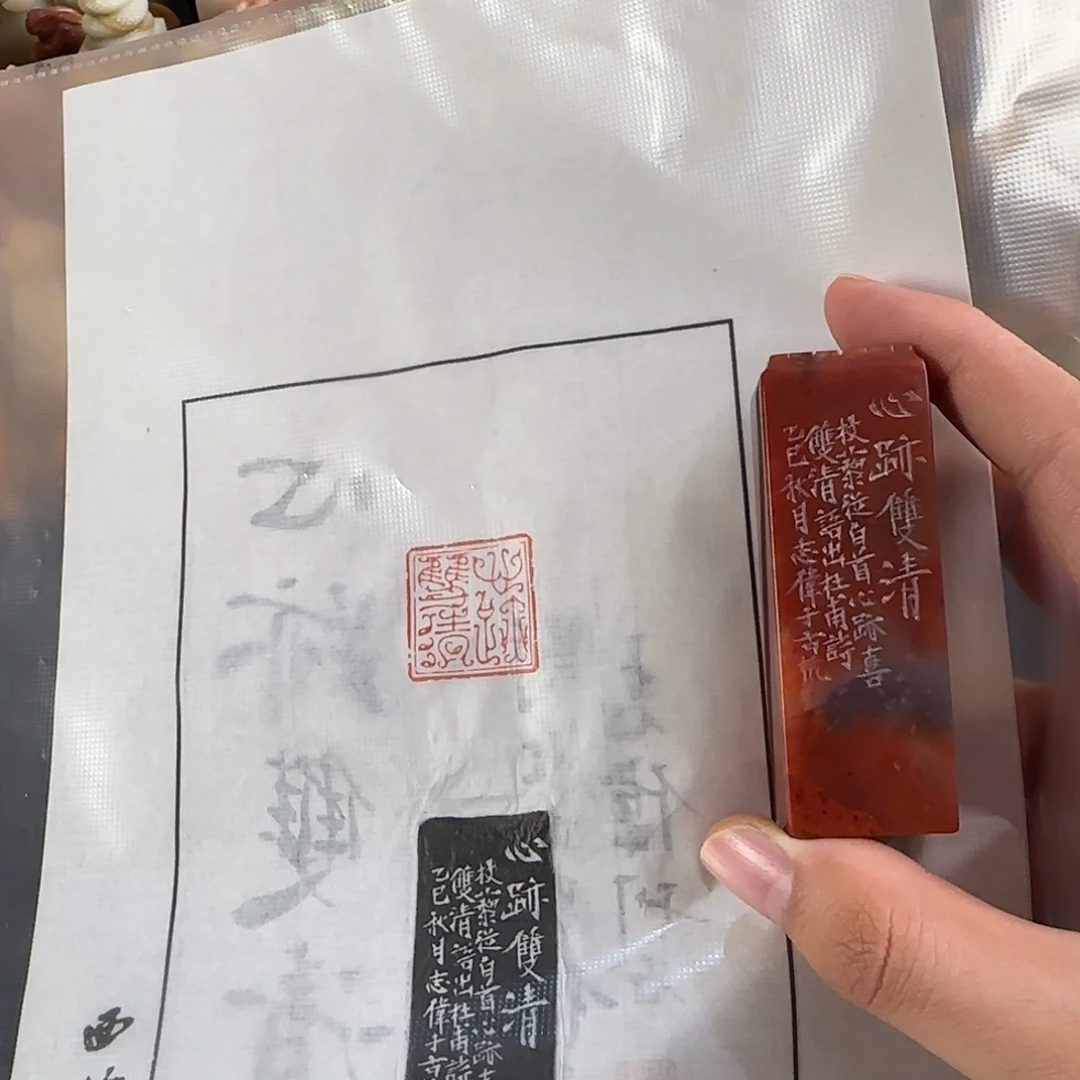 心跡雙清
杖藜從白首心跡喜
雙清語出杜甫詩
乙巳秋月志偉于古杭
心跡
雙清
心跡雙清
杖藜從白首心跡
雙清語出杜甫詩
乙巳秋月志偉于古
西